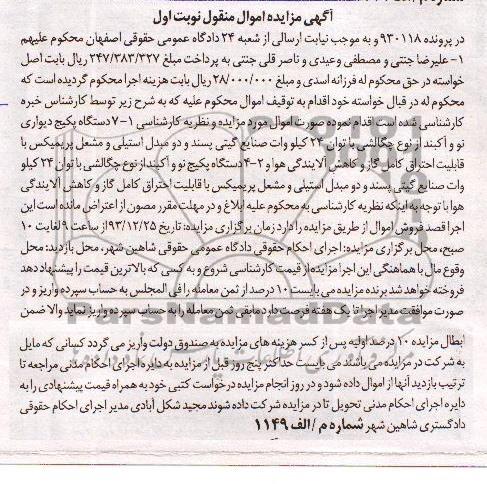 آگهی مزایده اموال منقول نوبت اول
در پرونده ۹۳۰۱۱۸ و به موجب نیابت ارسالی از شعبه ۲۴ دادگاه عمومی حقوقی اصفهان محکوم علیهم
۱- علیرضا جنتی و مصطفی وعیدی و ناصر قلی جنتی به پرداخت مبلغ ۲۴۷/۳۸۳/۳۲۷ ریال بابت اصل
خواسته در حق محکوم له فرزانه اسدی و مبلغ ۲۸/۰۰۰/۰۰۰ ریال بابت هزینه اجرا محکوم گردیده است که
محکوم له در قبال خواسته خود اقدام به توقیف اموال محکوم علیه که به شرح زیر توسط کارشناس خبره
کارشناسی شده است اقدام نموده صورت اموال مورد مزایده و نظریه کارشناسی ۱- ۷ دستگاه پکیج دیواری
نو و آکبند از نوع چگالشی با توان ۲۴ کیلو وات صنایع گیتی پسند و دو مبدل استیلی و مشعل پریمیکس با
قابلیت احتراق کامل گاز و کاهش آلایندگی هوا و ۲- ۴ دستگاه پکیج نو و آکبند از نوع چگالشی با توان ۲۴ کیلو
وات صنایع گیتی پسند و دو مبدل استیلی و مشعل پریمیکس با قابلیت احتراق کامل گاز و کاهش آلایندگی
هوا با توجه به اینکه نظریه کارشناسی به محکوم علیه ابلاغ و در مهلت مقرر مصون از اعتراض مانده است این
اجرا قصد فروش اموال از طریق مزایده را دارد زمان برگزاری مزایده: تاریخ ۹۳/۱۲/۲۵ از ساعت ۹ لغایت ۱۰
صبح، محل برگزاری مزایده: اجرای احکام حقوقی دادگاه عمومی حقوقی شاهین شهر، محل بازدید: محل
وقوع مال با هماهنگی این اجرا مزایده از قیمت کارشناسی شروع و به کسی که بالاترین قیمت را پیشنهاد دهد
فروخته خواهد شد برنده مزایده می بایست ۱۰ درصد از ثمن معامله را فی المجلس به حساب سپرده واریز و در
صورت موافقت مدیر اجرا تا یک هفته فرصت دارد مابقی ثمن معامله را به حساب سپرده واریز نماید والا ضمن
ابطال مزایده ۱۰ درصد اولیه پس از کسر هزینه های مزایده به صندوق دولت واریز می گردد کسانی که مایل
به شرکت در مزایده می باشند می بایست حداکثر پنج روز قبل از مزایده به دایره اجرای احکام مدنی مراجعه تا
ترتیب بازدید آنها از اموال داده شود و در روز انجام مزایده درخواست کتبی خود به همراه قیمت پیشنهادی را به
دایره اجرای احکام مدنی تحویل تا در مزایده شرکت داده شوند مجید شکل آبادی مدیر اجرای احکام حقوقی
دادگستری شاهین شهر شماره م/الف ۱۱۴۹
ParsNamadData